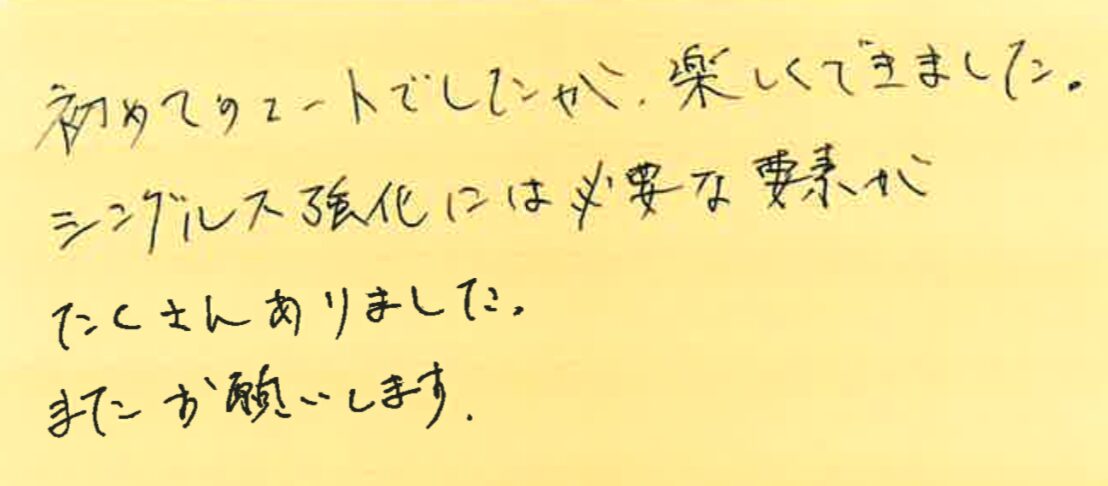 初めてのコートでしたが、楽しくできました。
シングルス強化には必要な要素が
たくさんありました。
またお願いします.